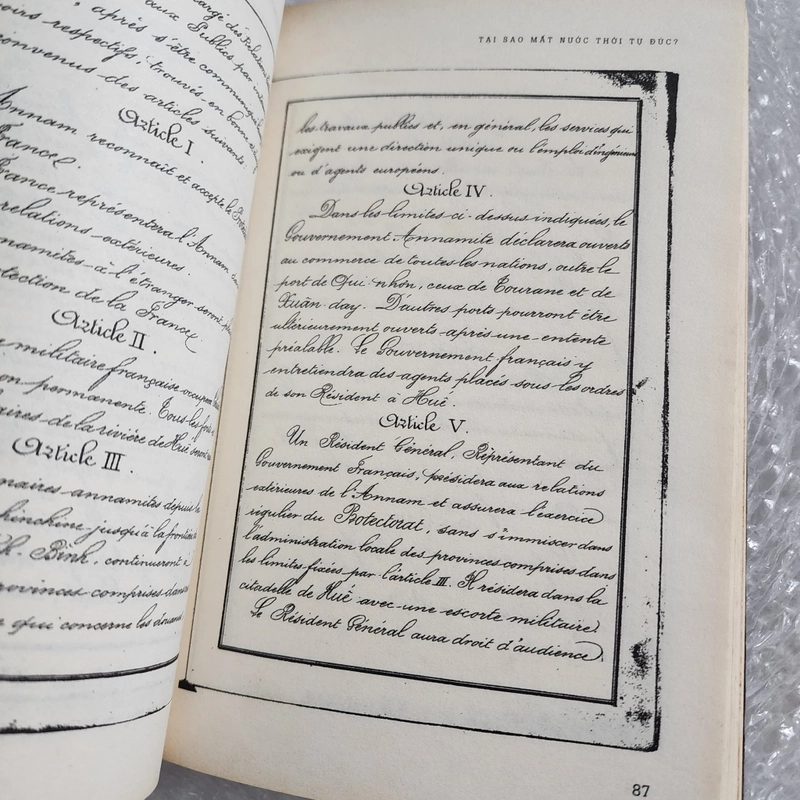 des Relations
aux Publics par un
", après s'être
respectifs, trouvés en bonne
convenus des articles suivants
Article I.
Annam reconnait et accepte le
France.
représentera l'Annam
relations extérieures.
à l'étranger seront
de la France.
Article II.
militaire française
permanente. Tous les
de la rivière de Hué
Article III.
annamites depuis la
jusqu'à la
Binh, continueront à
comprises
qui concerne les
TẠI SAO MẤT NƯỚC THỜI TỰ ĐỨC?
les travaux publics et, en général, les services qui
exigent une direction unique ou l'emploi d'ingénieurs
ou d'agents européens.
Article IV.
Dans les limites ci-dessus indiquées, le
Gouvernement Annamite déclarera ouverts
au commerce de toutes les nations, outre le
port de Qui nhơn, ceux de Tourane et de
Xuãn-day. D'autres ports pourront être
ultérieurement ouverts après une entente
prialable. Le Gouvernement français y
entretiendra des agents placés sous les ordres
de son Résident à Hué.
Article V.
Un Résident Général, Représentant du
Gouvernement Français, présidera aux relations
extérieures de l'Annam et assurera l'exercice
régulier du Botectorat, sans s'immiscer dans
l'administration locale des provinces comprises dans
les limites fixées par l'article III. Il résidera dans la
citadelle de Huê avec une escorte militaire.
Le Résident Général aura droit d'audience
87